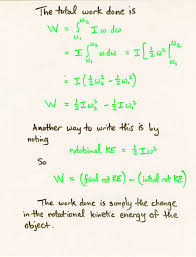 The total work done is
W = ∫_{ω₁}^{ω₂} I ω dω
= I ∫_{ω₁}^{ω₂} ω dω = I [½ ω²]_{ω₁}^{ω₂}
= I (½ω₂² - ½ω₁²)
W = ½ I ω₂² - ½ I ω₁²
Another way to write this is by
noting
rotational KE = ½ I ω²
So
W = (final rot KE) - (initial rot KE)
The work done is simply the change
in the rotational kinetic energy of the
object.